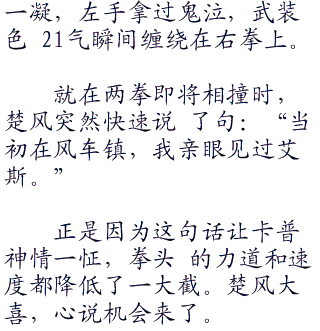 一凝，左手拿过鬼泣，武装
色 21气瞬间缠绕在右拳上。
就在两拳即将相撞时，
楚风突然快速说 了句：“当
初在风车镇，我亲眼见过艾
斯。”
正是因为这句话让卡普
神情一怔，拳头 的力道和速
度都降低了一大截。楚风大
喜，心说机会来了。